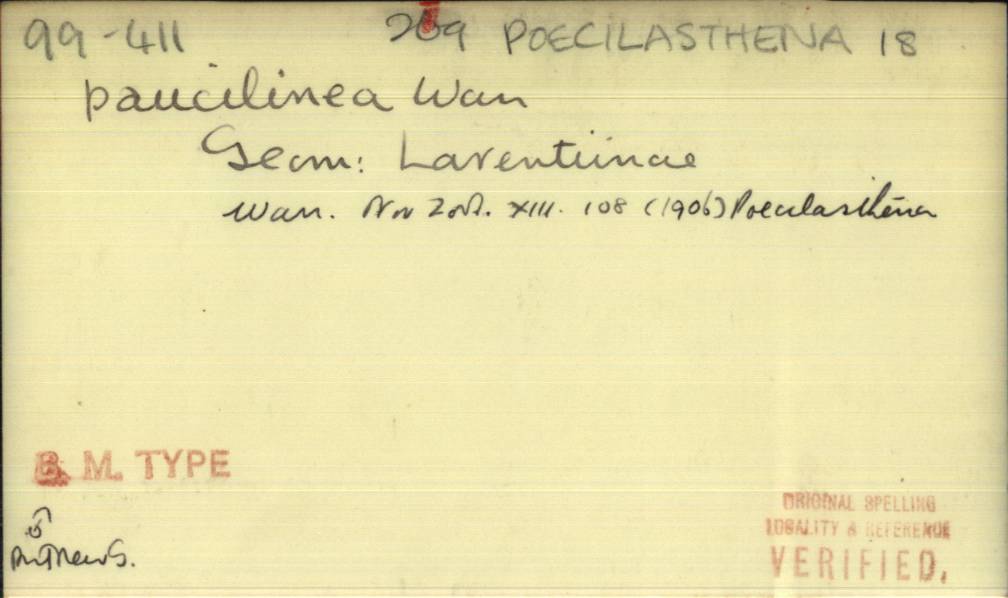 99-411 209 POECILASTHENA 18
paucilinea Warr
Geom: Larentiinae
Warr. Nov Zool. XIII. 108 (1906) Poecilasthena
B. M. TYPE
♂
ORIGINAL SPELLING
LOCALITY & REFERENCE
VERIFIED.